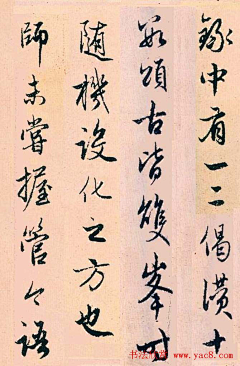 錄中有一二偈讚十
數頌古皆雙峯時
隨機設化之方也
師未嘗握管今語
书法欣赏 www.yac8.com